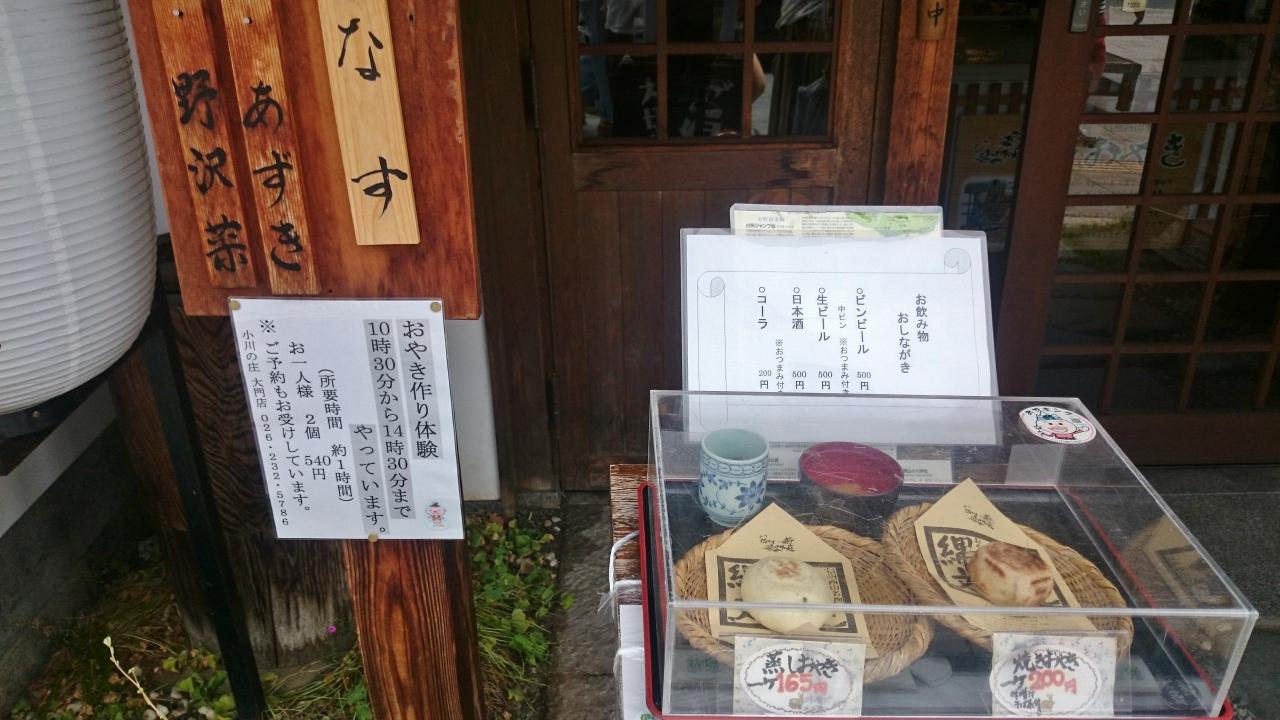 なす
あずき
野沢菜
おやき作り体験
10時30分から14時30分まで
やっています。
(所要時間 約1時間)
お一人様 2個 540円
※ご予約もお受けしています。
小川の庄 大門店 026・232・5786
中
お飲み物
おしながき
○ビンビール 500円
中ビン ※おつまみ付き
○生ビール 500円
○日本酒 500円
※おつまみ付き
○コーラ 200円
蒸しおやき
一ケ165円
焼きおやき
一ケ200円
縄文